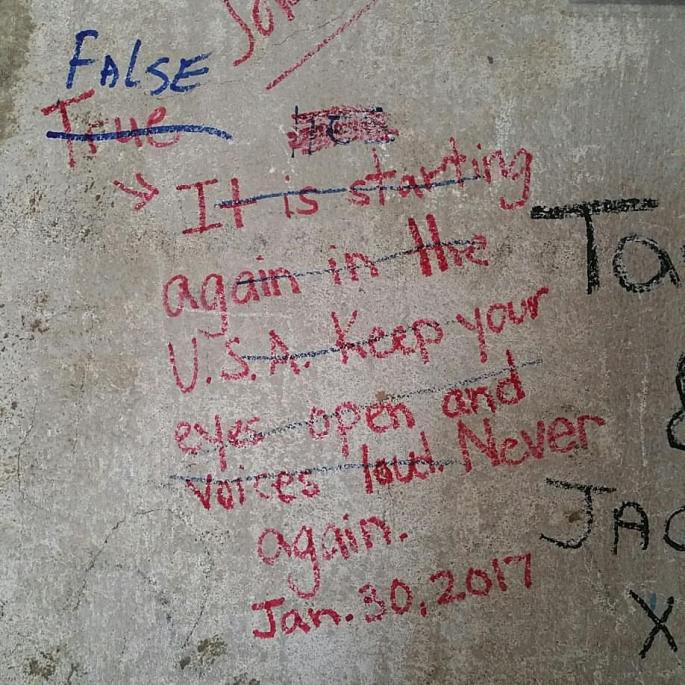 FAlSE
True
It is starting
again in the
U.S.A. Keep your
eyes open and
voices loud. Never
again.
Jan. 30, 2017
Ta
JAC
X